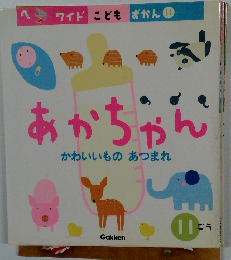 ワイド こども ずかん 11
あかちゃん
かわいいもの あつまれ
11ごう
Gakken